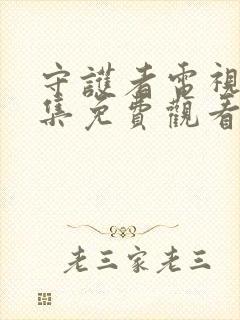 守護者電視
集免費觀看
老三家老三